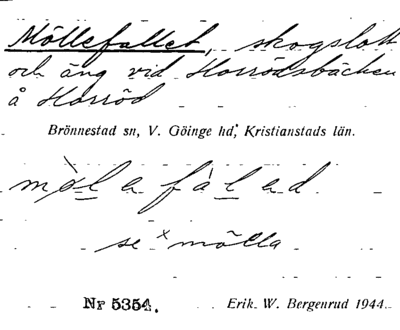 Möllefallet, skogslott
och äng vid Horrödsbäcken
å Horröd
Brönnestad sn, V. Göinge hd, Kristianstads län.
mòlefàlad.
se × mölla
Nr 5354.
Erik W. Bergenrud 1944.